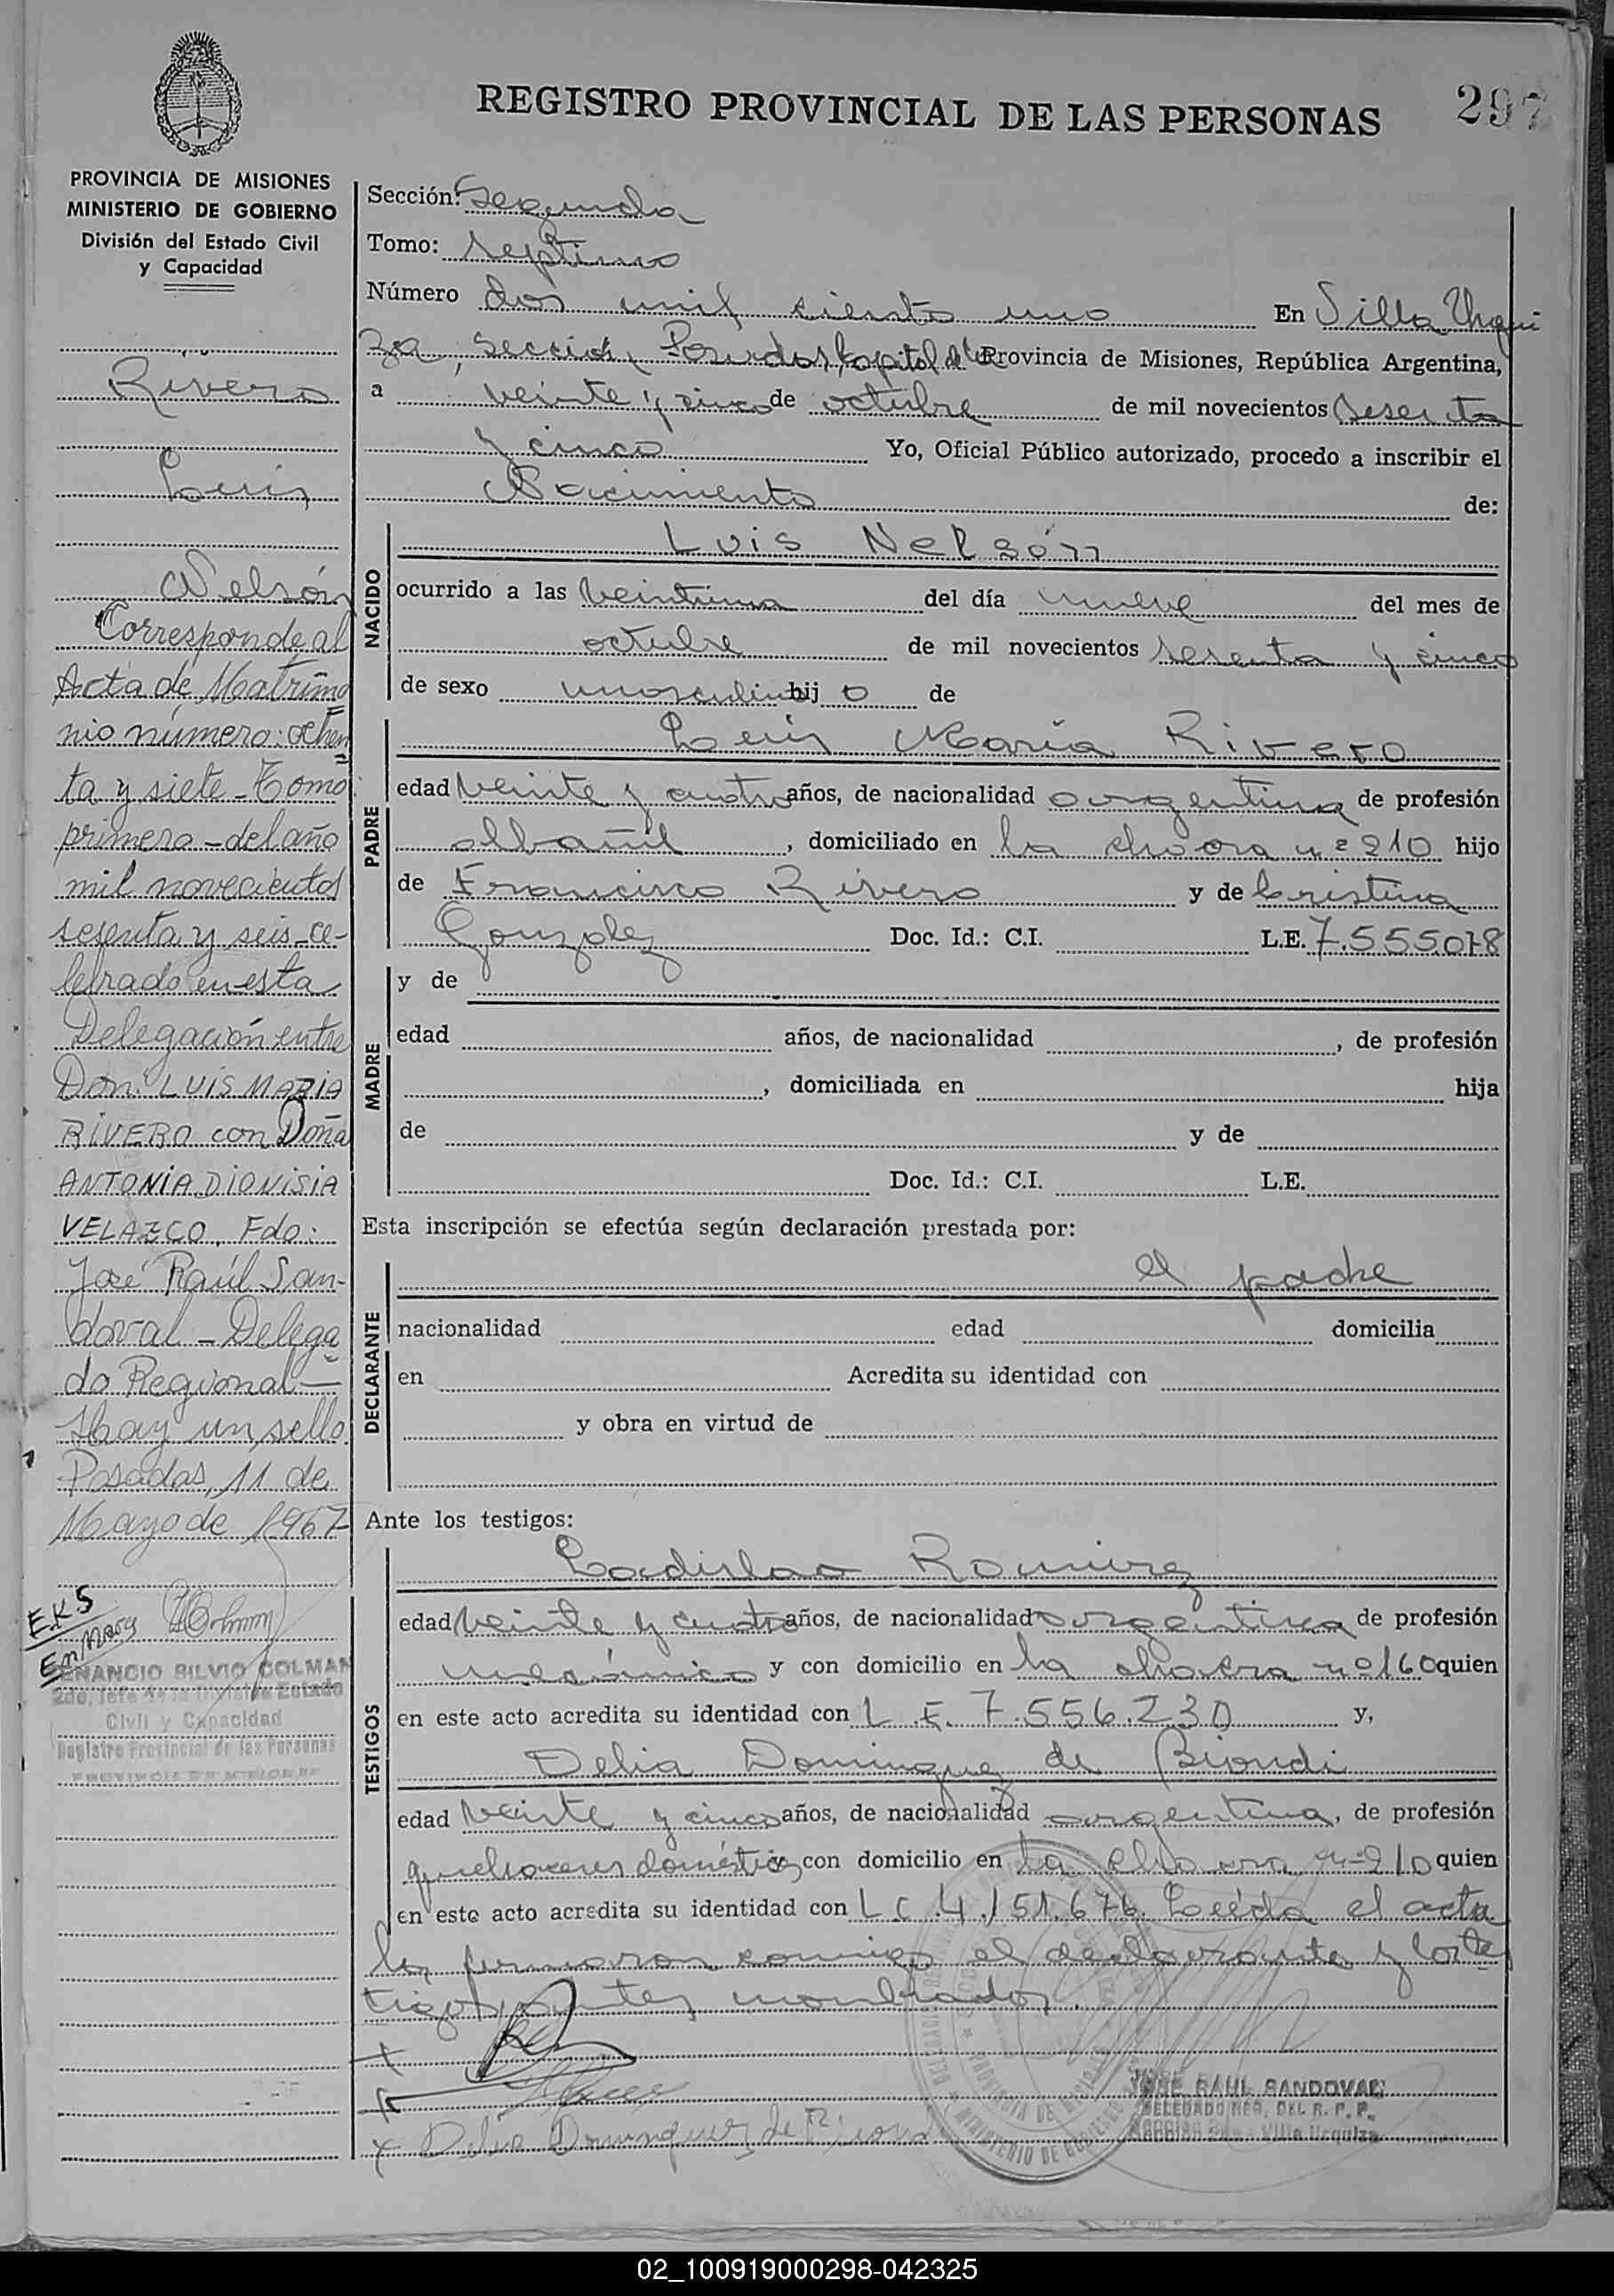 REGISTRO PROVINCIAL DE LAS PERSONAS
297
PROVINCIA DE MISIONES
MINISTERIO DE GOBIERNO
División del Estado Civil
y Capacidad
Rivero
Luis
Nelsón
Corresponde al
Acta de Matrimo
nio número: ochen
ta y siete - Tomo
primero - del año
mil novecientos
sesenta y seis - ce-
lebrado en esta
Delegación entre
Don: LUIS MARIA
RIVERO con Doña
ANTONIA DIONISIA
VELAZCO. Fdo:
José Raúl San-
doval - Delega
do Regional -
Hay un sello.
Posadas, 11 de
Mayo de 1967
EKS
En Marg
VENANCIO SILVIO COLMAN
2do. Jefe de la División Estado
Civil y Capacidad
Registro Provincial de las Personas
PROVINCIA DE MISIONES
Sección: Segunda
Tomo: septimo
Número dos mil ciento uno En Villa Urqui
za, Sección Posadas, Capital de la Provincia de Misiones, República Argentina,
a veinte y cinco de octubre de mil novecientos sesenta
y cinco Yo, Oficial Público autorizado, procedo a inscribir el
Nacimiento de:
NACIDO
Luis Nelsón
ocurrido a las veintiuna del día nueve del mes de
octubre de mil novecientos sesenta y cinco
de sexo masculino hijo de
PADRE
Luis María Rivero
edad veinte y cuatro años, de nacionalidad argentina de profesión
albañil , domiciliado en la chacra nº 210 hijo
de Francisco Rivero y de Cristina
Gonzalez Doc. Id.: C.I. L.E. 7.555.078
MADRE
y de
edad años, de nacionalidad , de profesión
, domiciliada en hija
de y de
Doc. Id.: C.I. L.E.
Esta inscripción se efectúa según declaración prestada por:
DECLARANTE
el padre
nacionalidad edad domicilia
en Acredita su identidad con
y obra en virtud de
Ante los testigos:
TESTIGOS
Ladislao Ramirez
edad veinte y cuatro años, de nacionalidad argentina de profesión
mecánico y con domicilio en la chacra nº 160 quien
en este acto acredita su identidad con L.E. 7.556.230 y,
Delia Dominguez de Biondi
edad veinte y cinco años, de nacionalidad argentina, de profesión
quehaceres domésticos con domicilio en la chacra nº 210 quien
en este acto acredita su identidad con L C .4.151.676. Leída el acta
la firmaron conmigo el declarante y los tes
tigos antes nombrados.
Delia Dominguez de Biondi
JOSE RAUL SANDOVAL
DELEGADO REG. DEL R. P. P.
Sección 2da. - Villa Urquiza
02_100919000298-042325